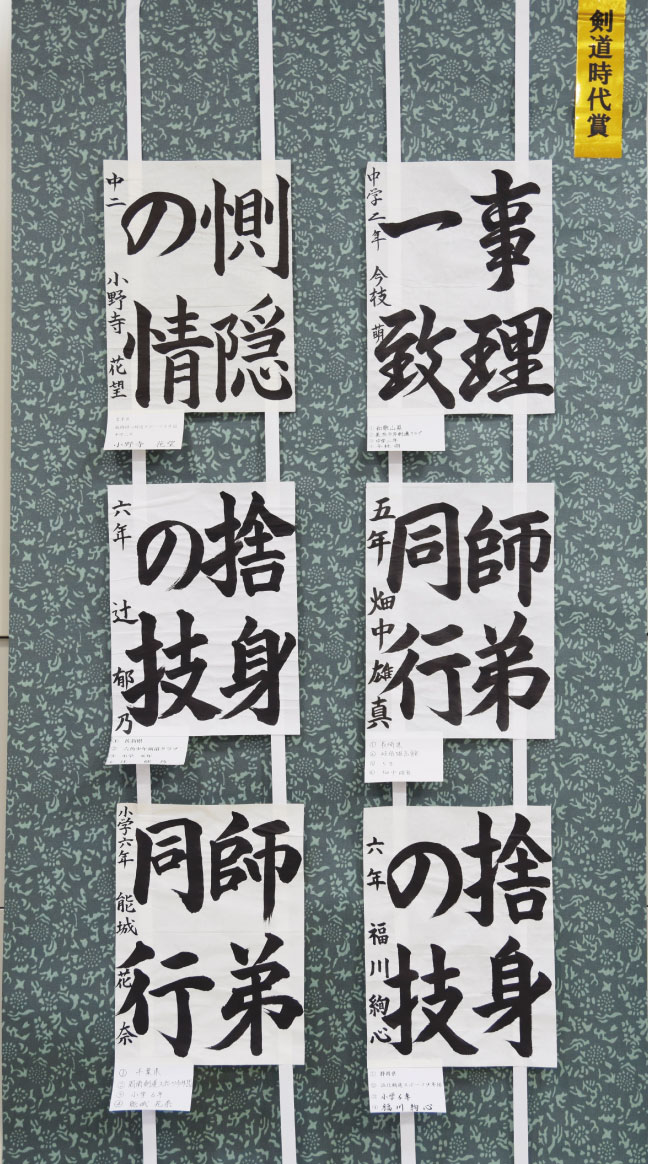 剣道時代賞
事理
一致
中学二年 今枝 萌
惻隠
の情
中二 小野寺 花望
小野寺 花望
師弟
同行
五年 畑中雄真
捨身
の技
六年 辻 郁乃
捨身
の技
六年 福川絢心
① 静岡県
③ 小学6年
④ 福川 絢心
師弟
同行
小学六年 能城 花奈
① 千葉県
③ 小学6年
④ 能城 花奈